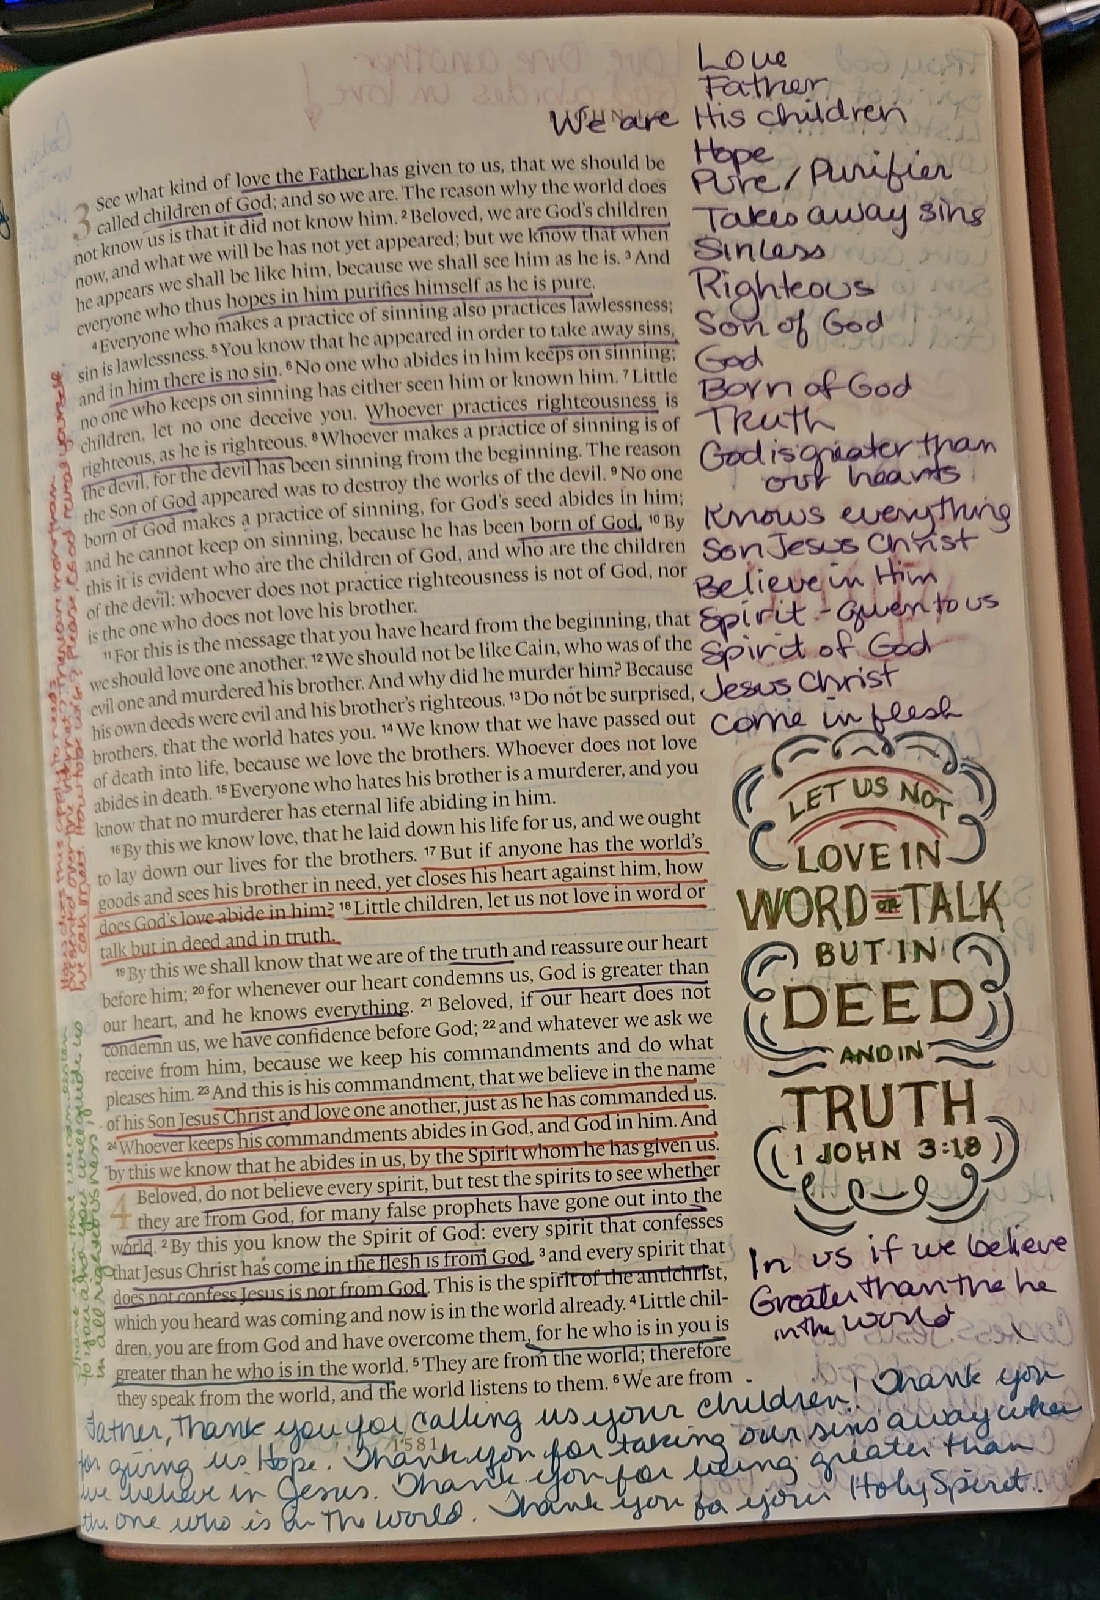 Love
Father
We are His children
Hope
Pure / Purifier
Takes away sins
Sinless
Righteous
Son of God
God
Born of God
Truth
God is greater than
our hearts
Knows everything
Son Jesus Christ
Believe in Him
Spirit - given to us
Spirit of God
Jesus Christ
come in flesh
3 See what kind of love the Father has given to us, that we should be
called children of God; and so we are. The reason why the world does
not know us is that it did not know him. 2 Beloved, we are God's children
now, and what we will be has not yet appeared; but we know that when
he appears we shall be like him, because we shall see him as he is. 3 And
everyone who thus hopes in him purifies himself as he is pure.
4 Everyone who makes a practice of sinning also practices lawlessness;
sin is lawlessness. 5 You know that he appeared in order to take away sins,
and in him there is no sin. 6 No one who abides in him keeps on sinning;
no one who keeps on sinning has either seen him or known him. 7 Little
children, let no one deceive you. Whoever practices righteousness is
righteous, as he is righteous. 8 Whoever makes a practice of sinning is of
the devil, for the devil has been sinning from the beginning. The reason
the Son of God appeared was to destroy the works of the devil. 9 No one
born of God makes a practice of sinning, for God's seed abides in him;
and he cannot keep on sinning, because he has been born of God. 10 By
this it is evident who are the children of God, and who are the children
of the devil: whoever does not practice righteousness is not of God, nor
is the one who does not love his brother.
11 For this is the message that you have heard from the beginning, that
we should love one another. 12 We should not be like Cain, who was of the
evil one and murdered his brother. And why did he murder him? Because
his own deeds were evil and his brother's righteous. 13 Do not be surprised,
brothers, that the world hates you. 14 We know that we have passed out
of death into life, because we love the brothers. Whoever does not love
abides in death. 15 Everyone who hates his brother is a murderer, and you
know that no murderer has eternal life abiding in him.
16 By this we know love, that he laid down his life for us, and we ought
to lay down our lives for the brothers. 17 But if anyone has the world's
goods and sees his brother in need, yet closes his heart against him, how
does God's love abide in him? 18 Little children, let us not love in word or
talk but in deed and in truth.
19 By this we shall know that we are of the truth and reassure our heart
before him; 20 for whenever our heart condemns us, God is greater than
our heart, and he knows everything. 21 Beloved, if our heart does not
condemn us, we have confidence before God; 22 and whatever we ask we
receive from him, because we keep his commandments and do what
pleases him. 23 And this is his commandment, that we believe in the name
of his Son Jesus Christ and love one another, just as he has commanded us.
24 Whoever keeps his commandments abides in God, and God in him. And
by this we know that he abides in us, by the Spirit whom he has given us.
4 Beloved, do not believe every spirit, but test the spirits to see whether
they are from God, for many false prophets have gone out into the
world. 2 By this you know the Spirit of God: every spirit that confesses
that Jesus Christ has come in the flesh is from God, 3 and every spirit that
does not confess Jesus is not from God. This is the spirit of the antichrist,
which you heard was coming and now is in the world already. 4 Little chil-
dren, you are from God and have overcome them, for he who is in you is
greater than he who is in the world. 5 They are from the world; therefore
they speak from the world, and the world listens to them. 6 We are from
LET US NOT
LOVE IN
WORD OR TALK
BUT IN
DEED
AND IN
TRUTH
(1 JOHN 3:18)
In us if we believe
Greater than the he
in the world
Father, Thank you for calling us your children! Thank you
for giving us Hope. Thank you for taking our sins away when
we believe in Jesus. Thank you for being greater than
the one who is in the world. Thank you for your Holy Spirit.
1581